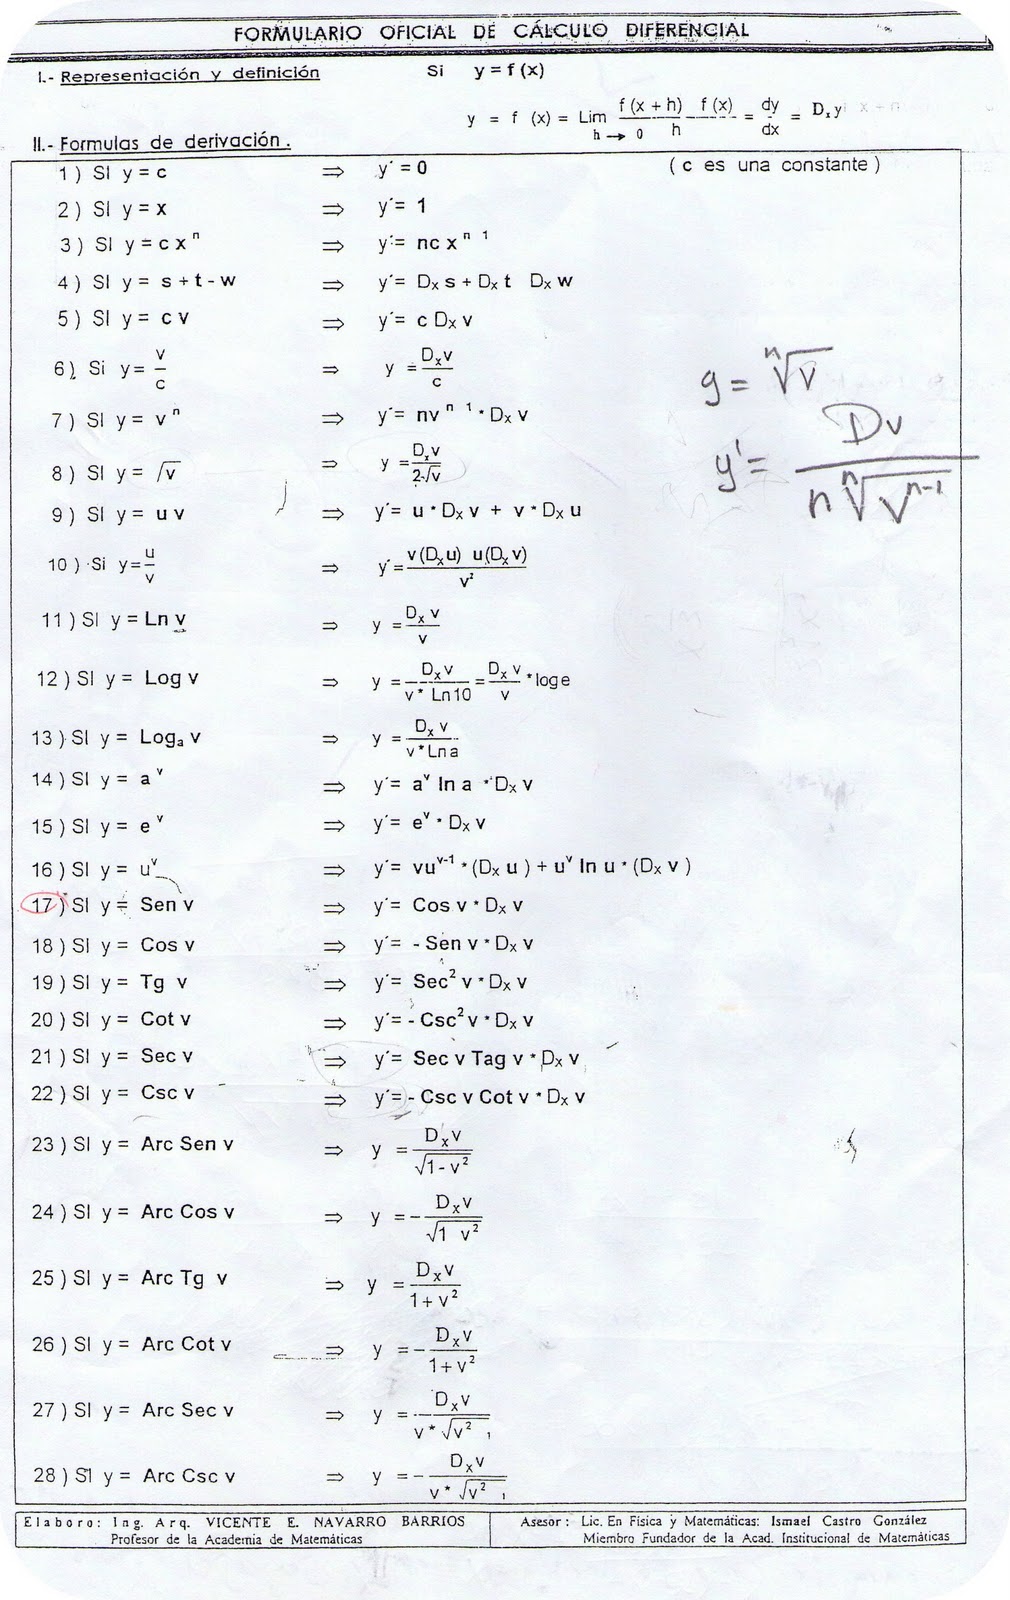 FORMULARIO OFICIAL DE CÁLCULO DIFERENCIAL
I.- Representación y definición Si y = f (x)
y = f (x) = Lim h → 0 f (x + h) f (x) / h = dy/dx = Dₓ y
II.- Formulas de derivación.
1 ) SI y = c ⇒ y´ = 0 ( c es una constante )
2 ) SI y = x ⇒ y´= 1
3 ) SI y = c xⁿ ⇒ y´= nc x ⁿ ¹
4 ) SI y = s + t - w ⇒ y´= Dₓ s + Dₓ t Dₓ w
5 ) SI y = c v ⇒ y´= c Dₓ v
6 ) Si y = v/c ⇒ y = Dₓv/c
7 ) SI y = v ⁿ ⇒ y´= nv ⁿ ¹ * Dₓ v
8 ) SI y = √v ⇒ y = Dₓv/2√v
9 ) SI y = u v ⇒ y´= u * Dₓ v + v * Dₓ u
10 ) Si y = u/v ⇒ y´= v(Dₓu) u(Dₓv)/v²
11 ) SI y = Ln v ⇒ y = Dₓ v/v
12 ) SI y = Log v ⇒ y = Dₓv/v * Ln10 = Dₓ v/v * log e
13 ) SI y = Logₐ v ⇒ y = Dₓ v/v * Ln a
14 ) SI y = a ᵛ ⇒ y´= aᵛ ln a * Dₓ v
15 ) SI y = e ᵛ ⇒ y´= eᵛ * Dₓ v
16 ) SI y = uᵛ ⇒ y´= vuᵛ⁻¹ * (Dₓ u ) + uᵛ ln u * (Dₓ v )
17 ) SI y = Sen v ⇒ y´= Cos v * Dₓ v
18 ) SI y = Cos v ⇒ y´= - Sen v * Dₓ v
19 ) SI y = Tg v ⇒ y´= Sec² v * Dₓ v
20 ) SI y = Cot v ⇒ y´= - Csc² v * Dₓ v
21 ) SI y = Sec v ⇒ y´= Sec v Tag v * Dₓ v
22 ) SI y = Csc v ⇒ y´= - Csc v Cot v * Dₓ v
23 ) SI y = Arc Sen v ⇒ y = Dₓv/√1 - v²
24 ) SI y = Arc Cos v ⇒ y = - Dₓv/√1 v²
25 ) SI y = Arc Tg v ⇒ y = Dₓv/1 + v²
26 ) SI y = Arc Cot v ⇒ y = - Dₓv/1 + v²
27 ) SI y = Arc Sec v ⇒ y = Dₓv/v * √v² 1
28 ) SI y = Arc Csc v ⇒ y = - Dₓv/v * √v² 1
y = ⁿ√v
y' = Dv/n ⁿ√vⁿ⁻¹
Elaboro: Ing. Arq. VICENTE E. NAVARRO BARRIOS
Profesor de la Academia de Matemáticas
Asesor : Lic. En Física y Matemáticas: Ismael Castro González
Miembro Fundador de la Acad. Institucional de Matemáticas